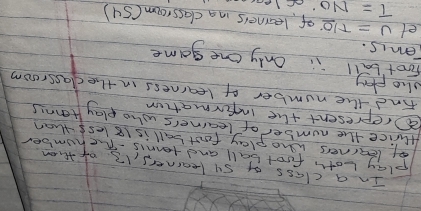 In a class of 54 learners, 13 of them
play both foot ball and tennis. The number
of learners who play foot ball is 18 less than
twice the number of learners who play tennis
@ represent the information
find the number of learners in the classroom
who play
foot ball ii only one game
Tennis.
let U = No. of learners in a classroom (54)
T = No. of learners